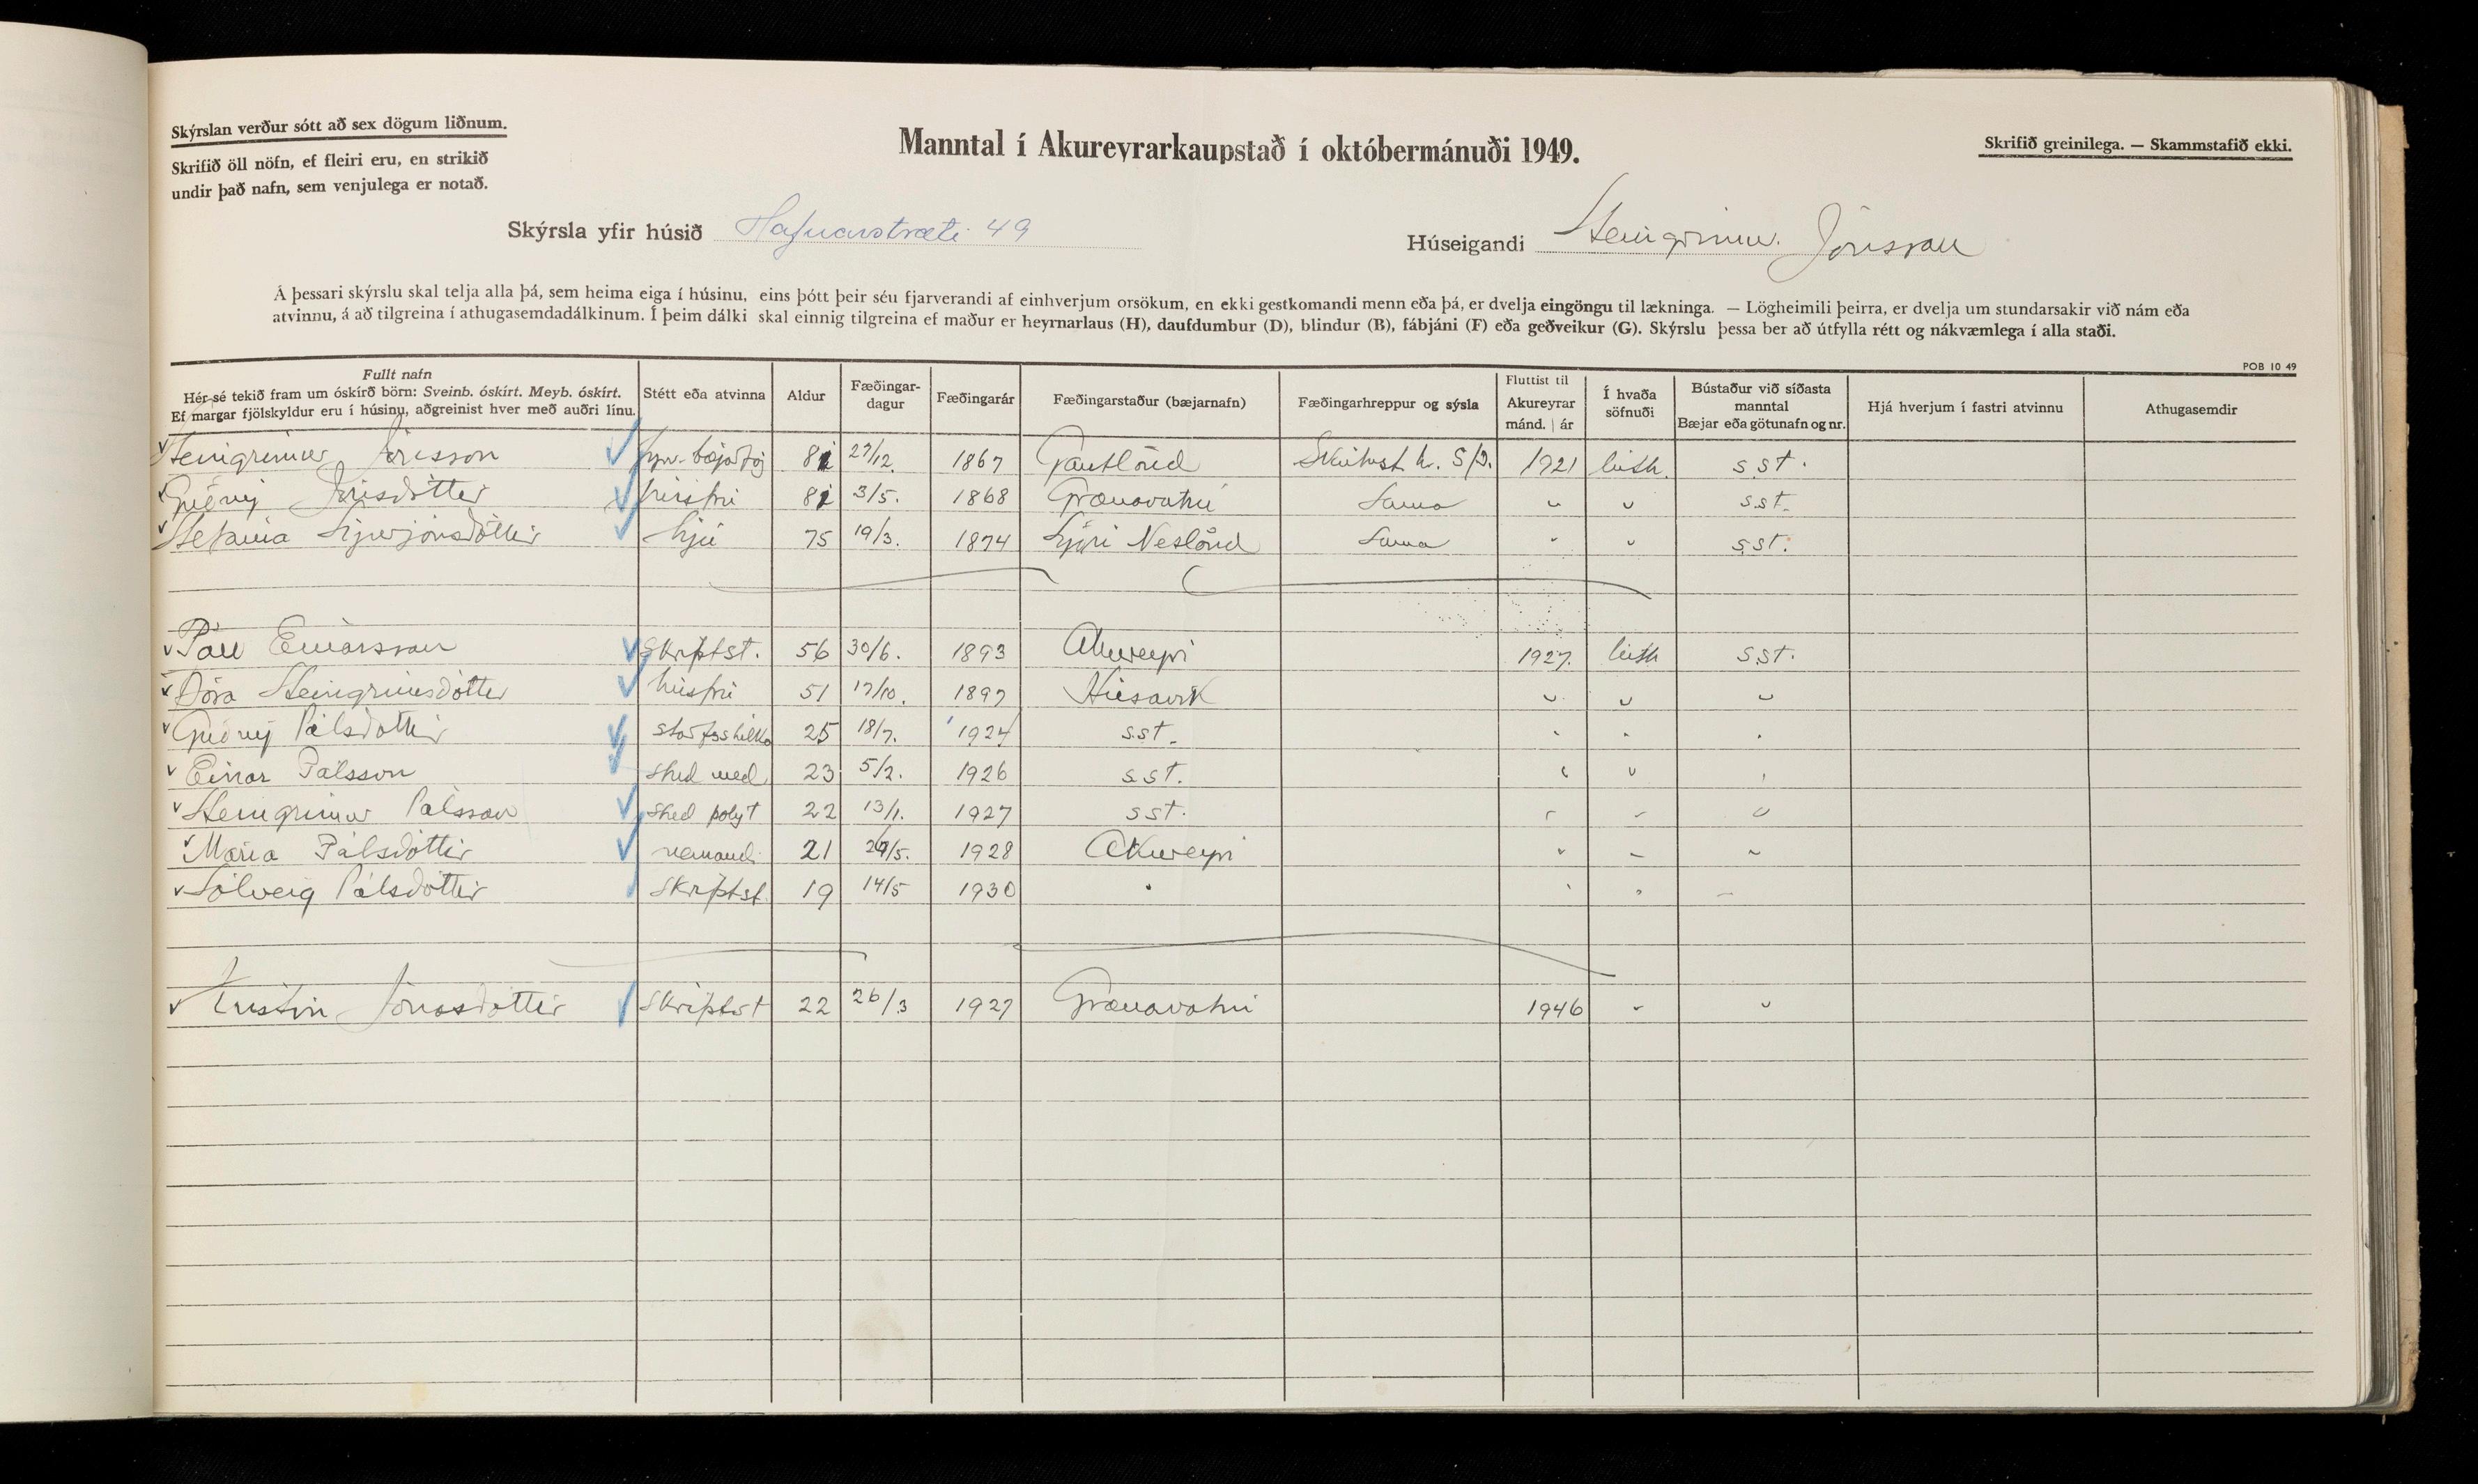 Skýrslan verður sótt að sex dögum liðnum.
Skrifið öll nöfn, ef fleiri eru, en strikið
undir það nafn, sem venjulega er notað.
Manntal í Akureyrarkaupstað í októbermánuði 1949.
Skrifið greinilega. — Skammstafið ekki.
Skýrsla yfir húsið Hafnarstræti 49
Húseigandi Steingrímur Jónsson
Á þessari skýrslu skal telja alla þá, sem heima eiga í húsinu, eins þótt þeir séu fjarverandi af einhverjum orsökum, en ekki gestkomandi menn eða þá, er dvelja eingöngu til lækninga. — Lögheimili þeirra, er dvelja um stundarsakir við nám eða
atvinnu, á að tilgreina í athugasemdadálkinum. Í þeim dálki skal einnig tilgreina ef maður er heyrnarlaus (H), daufdumbur (D), blindur (B), fábjáni (F) eða geðveikur (G). Skýrslu þessa ber að útfylla rétt og nákvæmlega í alla staði.
POB 10 49
Fullt nafn
Hér sé tekið fram um óskírð börn: Sveinb. óskírt. Meyb. óskírt.
Ef margar fjölskyldur eru í húsinu, aðgreinist hver með auðri línu.
Stétt eða atvinna
Aldur
Fæðingar-
dagur
Fæðingarár
Fæðingarstaður (bæjarnafn)
Fæðingarhreppur og sýsla
Fluttist til
Akureyrar
mánd. | ár
Í hvaða
söfnuði
Bústaður við síðasta
manntal
Bæjar eða götunafn og nr.
Hjá hverjum í fastri atvinnu
Athugasemdir
Steingrímur Jónsson fyrv. bæjarfóg 81 27/12. 1867 Gautlönd Skútust.h. S/Þ. 1921 lúth. s.st.
Guðný Jónsdóttir húsfrú 81 3/5. 1868 Grænavatni Sama " " s.st.
Stefanía Sigurjónsdóttir hjú 75 19/3. 1874 Syðri Neslönd Sama " " s.st.
Páll Einarsson Skrifst. 56 30/6. 1893 Akureyri 1927. lúth s.st.
Dóra Steingrímsdóttir húsfrú 51 17/10. 1897 Húsavík " " "
Guðný Pálsdóttir 25 18/7. 1924 s.st. " " "
Einar Pálsson stud med 23 5/2. 1926 s.st. " " "
Steingrímur Pálsson stud polyt 22 13/1. 1927 s.st. " " "
María Pálsdóttir nemandi 21 /5. 1928 Akureyri " " "
Sólveig Pálsdóttir Skrifst. 19 14/5 1930 " " " "
Kristín Jónasdóttir Skrifst 22 26/3 1927 Grænavatni 1946 " "